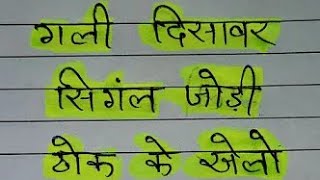 गली दिसावर
सिगंल जोड़ी
ठोक के खेलो